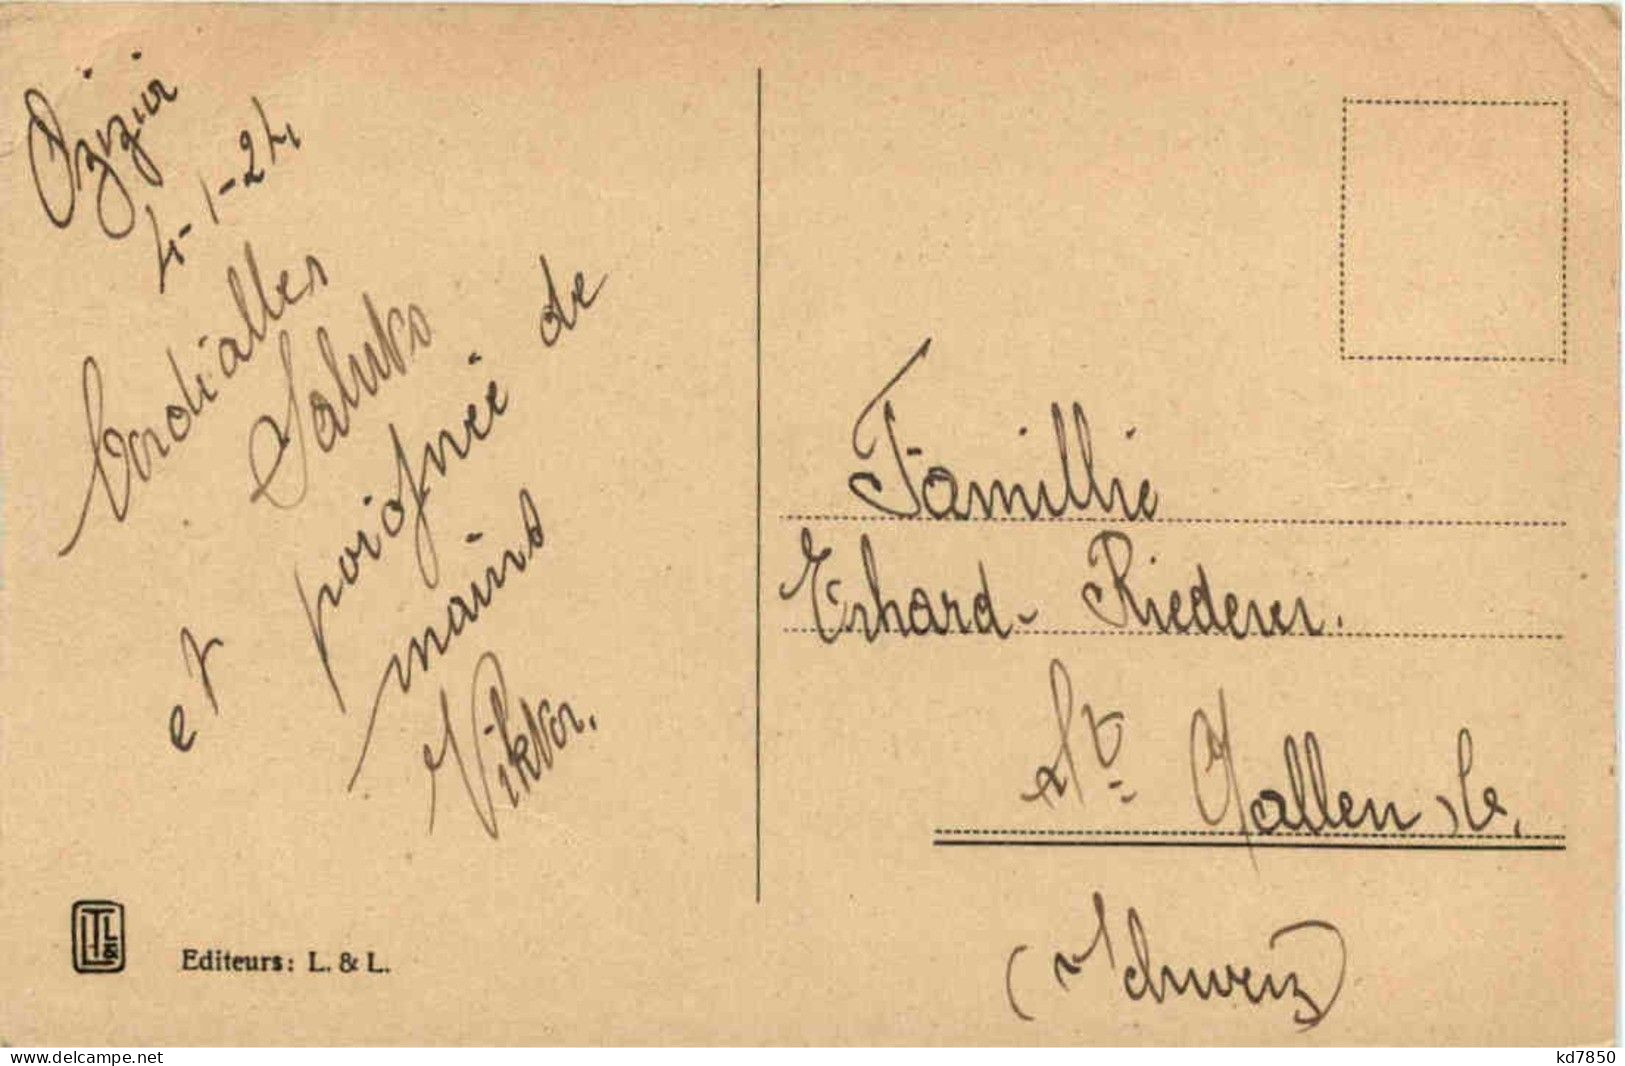 4-1-24
Cordialles
Saluts
et poignée de
mains
Viktor.
Famillie
Erhard- Riederer.
St. Gallen, C.
(Schweiz)
LTL&
Editeurs: L. & L.
www.delcampe.net
kd7850